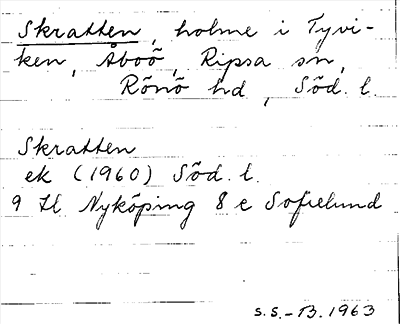 Skratten, holme i Tyvi-
ken, Åboö, Ripsa sn,
Rönö hd, Söd. l.
Skratten
ek (1960) Söd. l.
9 H Nyköping 8 e Sofielund
S.S.-B. 1963